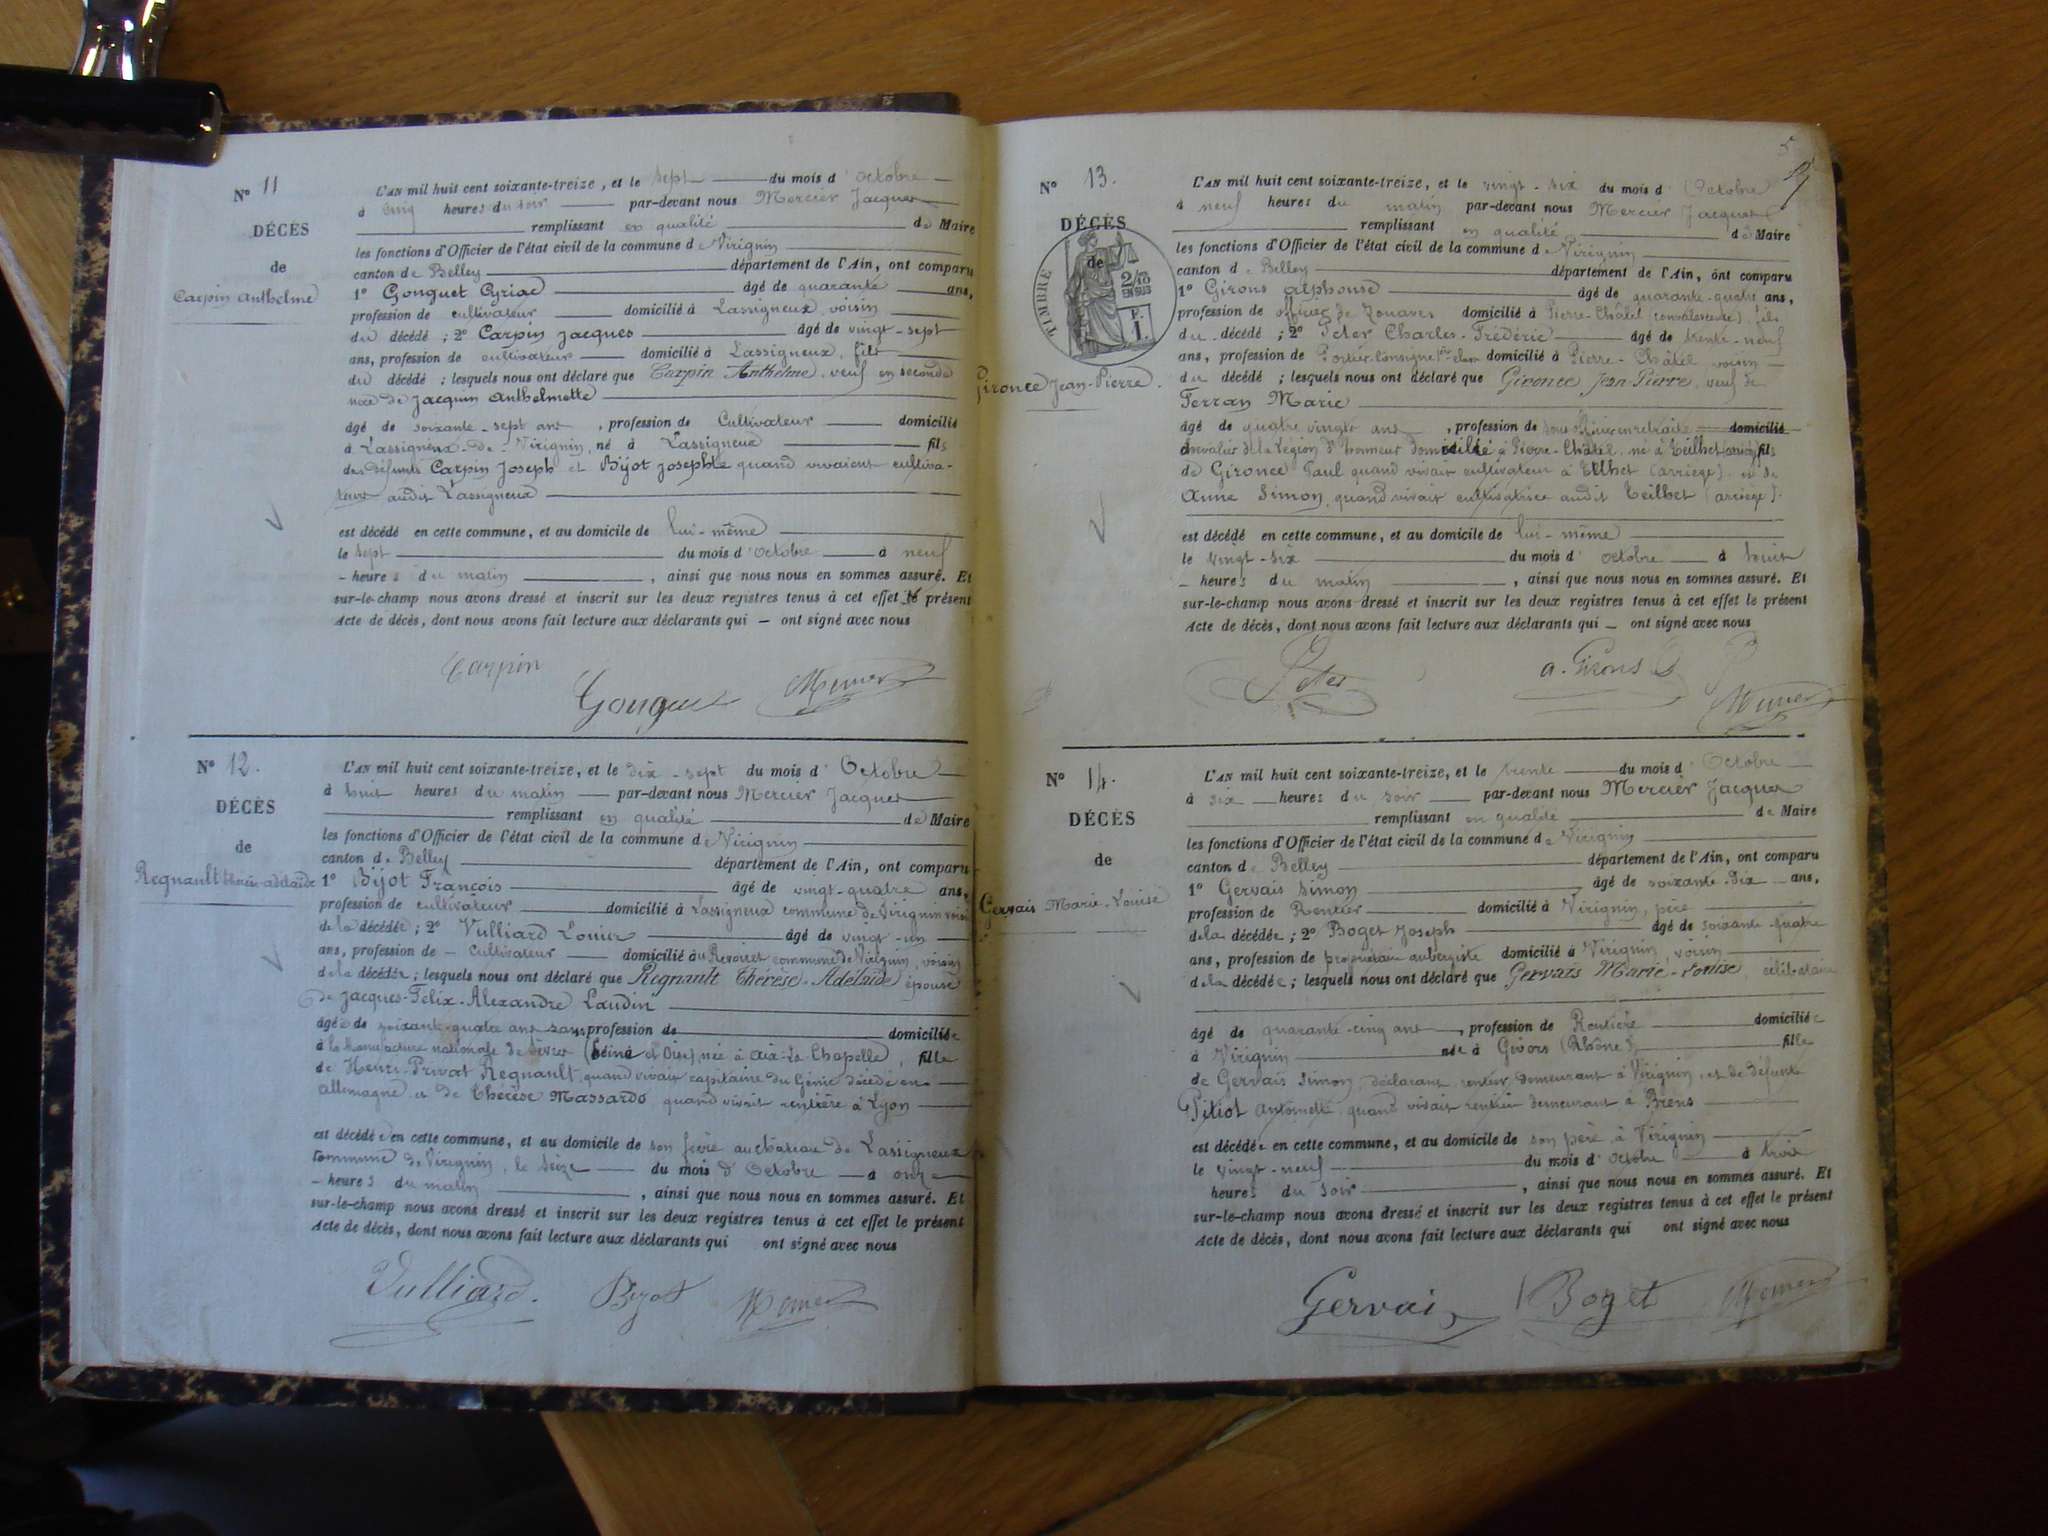 N° 11
DÉCÈS
de
Carpin Anthelme
L'AN mil huit cent soixante-treize, et le sept du mois d'Octobre
à cinq heures du soir par-devant nous Mercier Jacques
remplissant en qualité de Maire
les fonctions d'Officier de l'état civil de la commune de Virignin
canton de Belley département de l'Ain, ont comparu
1° Gonguet Cyriac âgé de quarante ans,
profession de cultivateur domicilié à Lassigneux, voisin
du décédé ; 2° Carpin Jacques âgé de vingt-sept
ans, profession de cultivateur domicilié à Lassigneux, fils
du décédé ; lesquels nous ont déclaré que Carpin Anthelme, veuf en seconde
noce de Jacquin Anthelmette
âgé de soixante-sept ans, profession de Cultivateur domicilié
à Lassigneux-de-Virignin, né à Lassigneux fils
des défunts Carpin Joseph et Bijot Josephte quand vivaient cultiva-
teurs audit Lassigneux
est décédé en cette commune, et au domicile de lui-même
le sept du mois d'Octobre à neuf
heures du matin, ainsi que nous nous en sommes assuré. Et
sur-le-champ nous avons dressé et inscrit sur les deux registres tenus à cet effet le présent
Acte de décès, dont nous avons fait lecture aux déclarants qui — ont signé avec nous
Carpin Gonguet Mercier
N° 12.
DÉCÈS
de
Regnault thérèse-adelaïde
L'AN mil huit cent soixante-treize, et le dix-sept du mois d'Octobre
à huit heures du matin par-devant nous Mercier Jacques
remplissant en qualité de Maire
les fonctions d'Officier de l'état civil de la commune de Virignin
canton de Belley département de l'Ain, ont comparu
1° Bijot François âgé de vingt-quatre ans,
profession de cultivateur domicilié à Lassigneux commune de Virignin voisin
de la décédée ; 2° Vulliard Louis âgé de vingt-un
ans, profession de cultivateur domicilié au commune de Virignin, voisin
de la décédée ; lesquels nous ont déclaré que Regnault Thérèse-Adélaïde épouse
de Jacques-Félix-Alexandre Laudin
âgée de soixante-quatre ans sans profession de domiciliée
à la Manufacture nationale de Sèvres (Seine et Oise) née à aix-la Chapelle, fille
de Henri-Privat Regnault, quand vivait capitaine du Génie décédé en
allemagne et de Thérèse Massardo quand vivait rentière à Lyon
est décédée en cette commune, et au domicile de son frère au château de Lassigneux
commune de Virignin, le seize du mois d'Octobre à onze
heures du matin, ainsi que nous nous en sommes assuré. Et
sur-le-champ nous avons dressé et inscrit sur les deux registres tenus à cet effet le présent
Acte de décès, dont nous avons fait lecture aux déclarants qui ont signé avec nous
Vulliard. Bijot Mercier
5
N° 13.
DÉCÈS
de
TIMBRE
2/10
EN SUS
F.
1.
Gironce Jean-Pierre.
L'AN mil huit cent soixante-treize, et le vingt-six du mois d'Octobre
à neuf heures du matin par-devant nous Mercier Jacques
remplissant en qualité de Maire
les fonctions d'Officier de l'état civil de la commune de Virignin
canton de Belley département de l'Ain, ont comparu
1° Girons alphonse âgé de quarante-quatre ans,
profession de officier de Zouaves domicilié à Pierre-Châtel (convalescente), fils
du décédé ; 2° Peter Charles-Frédéric âgé de trente-neuf
ans, profession de Portier-Consigne domicilié à Pierre-Châtel voisin
du décédé ; lesquels nous ont déclaré que Gironce Jean-Pierre, veuf de
Ferran Marie
âgé de quatre vingts ans, profession de sous officier en retraite domicilié
chevalier de la légion d'honneur domicilié à Pierre-Châtel, né à Teilhet (arriège) fils
de Gironce Paul quand vivait cultivateur à Teilhet (arriège). et de
Anne Simon, quand vivait cultivatrice audit Teilhet (arriège).
est décédé en cette commune, et au domicile de lui-même
le vingt-six du mois d'octobre à huit
heures du matin, ainsi que nous nous en sommes assuré. Et
sur-le-champ nous avons dressé et inscrit sur les deux registres tenus à cet effet le présent
Acte de décès, dont nous avons fait lecture aux déclarants qui — ont signé avec nous
Peter a. Girons Mercier
N° 14.
DÉCÈS
de
Gervais Marie-Louise
L'AN mil huit cent soixante-treize, et le trente du mois d'Octobre
à six heures du soir par-devant nous Mercier Jacques
remplissant en qualité de Maire
les fonctions d'Officier de l'état civil de la commune de Virignin
canton de Belley département de l'Ain, ont comparu
1° Gervais Simon âgé de soixante-dix ans,
profession de Rentier domicilié à Virignin, père
de la décédée ; 2° Boget Joseph âgé de soixante-quatre
ans, profession de propriétaire aubergiste domicilié à Virignin, voisin
de la décédée ; lesquels nous ont déclaré que Gervais Marie-Louise, célibataire
âgé de quarante-cinq ans, profession de Rentière domiciliée
à Virignin née à Givors (Rhône), fille
de Gervais Simon, déclarant, rentier demeurant à Virignin, et de défunte
Pitiot Antoinette quand vivait rentière demeurant à Brens
est décédée en cette commune, et au domicile de son père, à Virignin
le vingt-neuf du mois d'Octobre à trois
heures du soir, ainsi que nous nous en sommes assuré. Et
sur-le-champ nous avons dressé et inscrit sur les deux registres tenus à cet effet le présent
Acte de décès, dont nous avons fait lecture aux déclarants qui ont signé avec nous
Gervais Boget Mercier